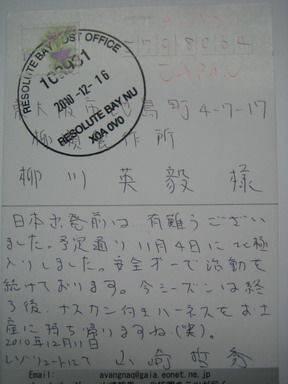 RESOLUTE BAY POST OFFICE
101931
2010-12-16
RESOLUTE BAY, NU
X0A 0V0
大阪市 島町4-7-17
柳 製作所
柳川 英毅 様
日本出発前は有難うござい
ました。予定通り11月4日に北極
入りしました。安全オーで活動を
続けております。今シーズンは終
了後、ナスカン付きハーネスをお土
産に持ち帰りますね(笑)。
2010年12月11日
レゾリュートにて 山崎哲秀
Email: avangnaq@gaia.eonet.ne.jp